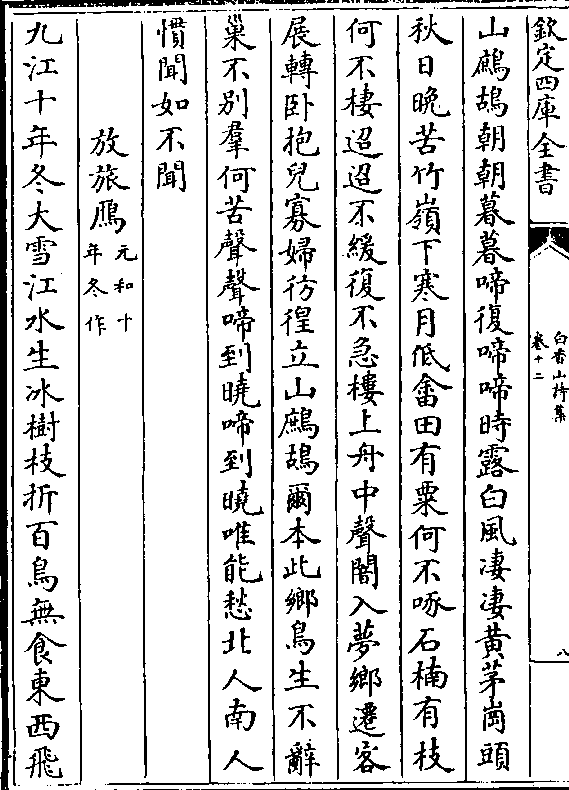 欽定四庫全書
白香山詩集
卷十二
八
山鷓鴣朝朝暮暮啼復啼啼時露白風凄凄黄茅崗頭
秋日晚苦竹嶺下寒月低畬田有粟何不啄石楠有枝
何不棲迢迢不緩復不急樓上舟中聲闇入夢鄉遷客
展轉卧抱兒寡婦彷徨立山鷓鴣爾本此鄉鳥生不辭
巢不別羣何苦聲聲啼到曉啼到曉唯能愁北人南人
慣聞如不聞
放旅鴈元和十
年冬作
九江十年冬大雪江水生冰樹枝折百鳥無食東西飛